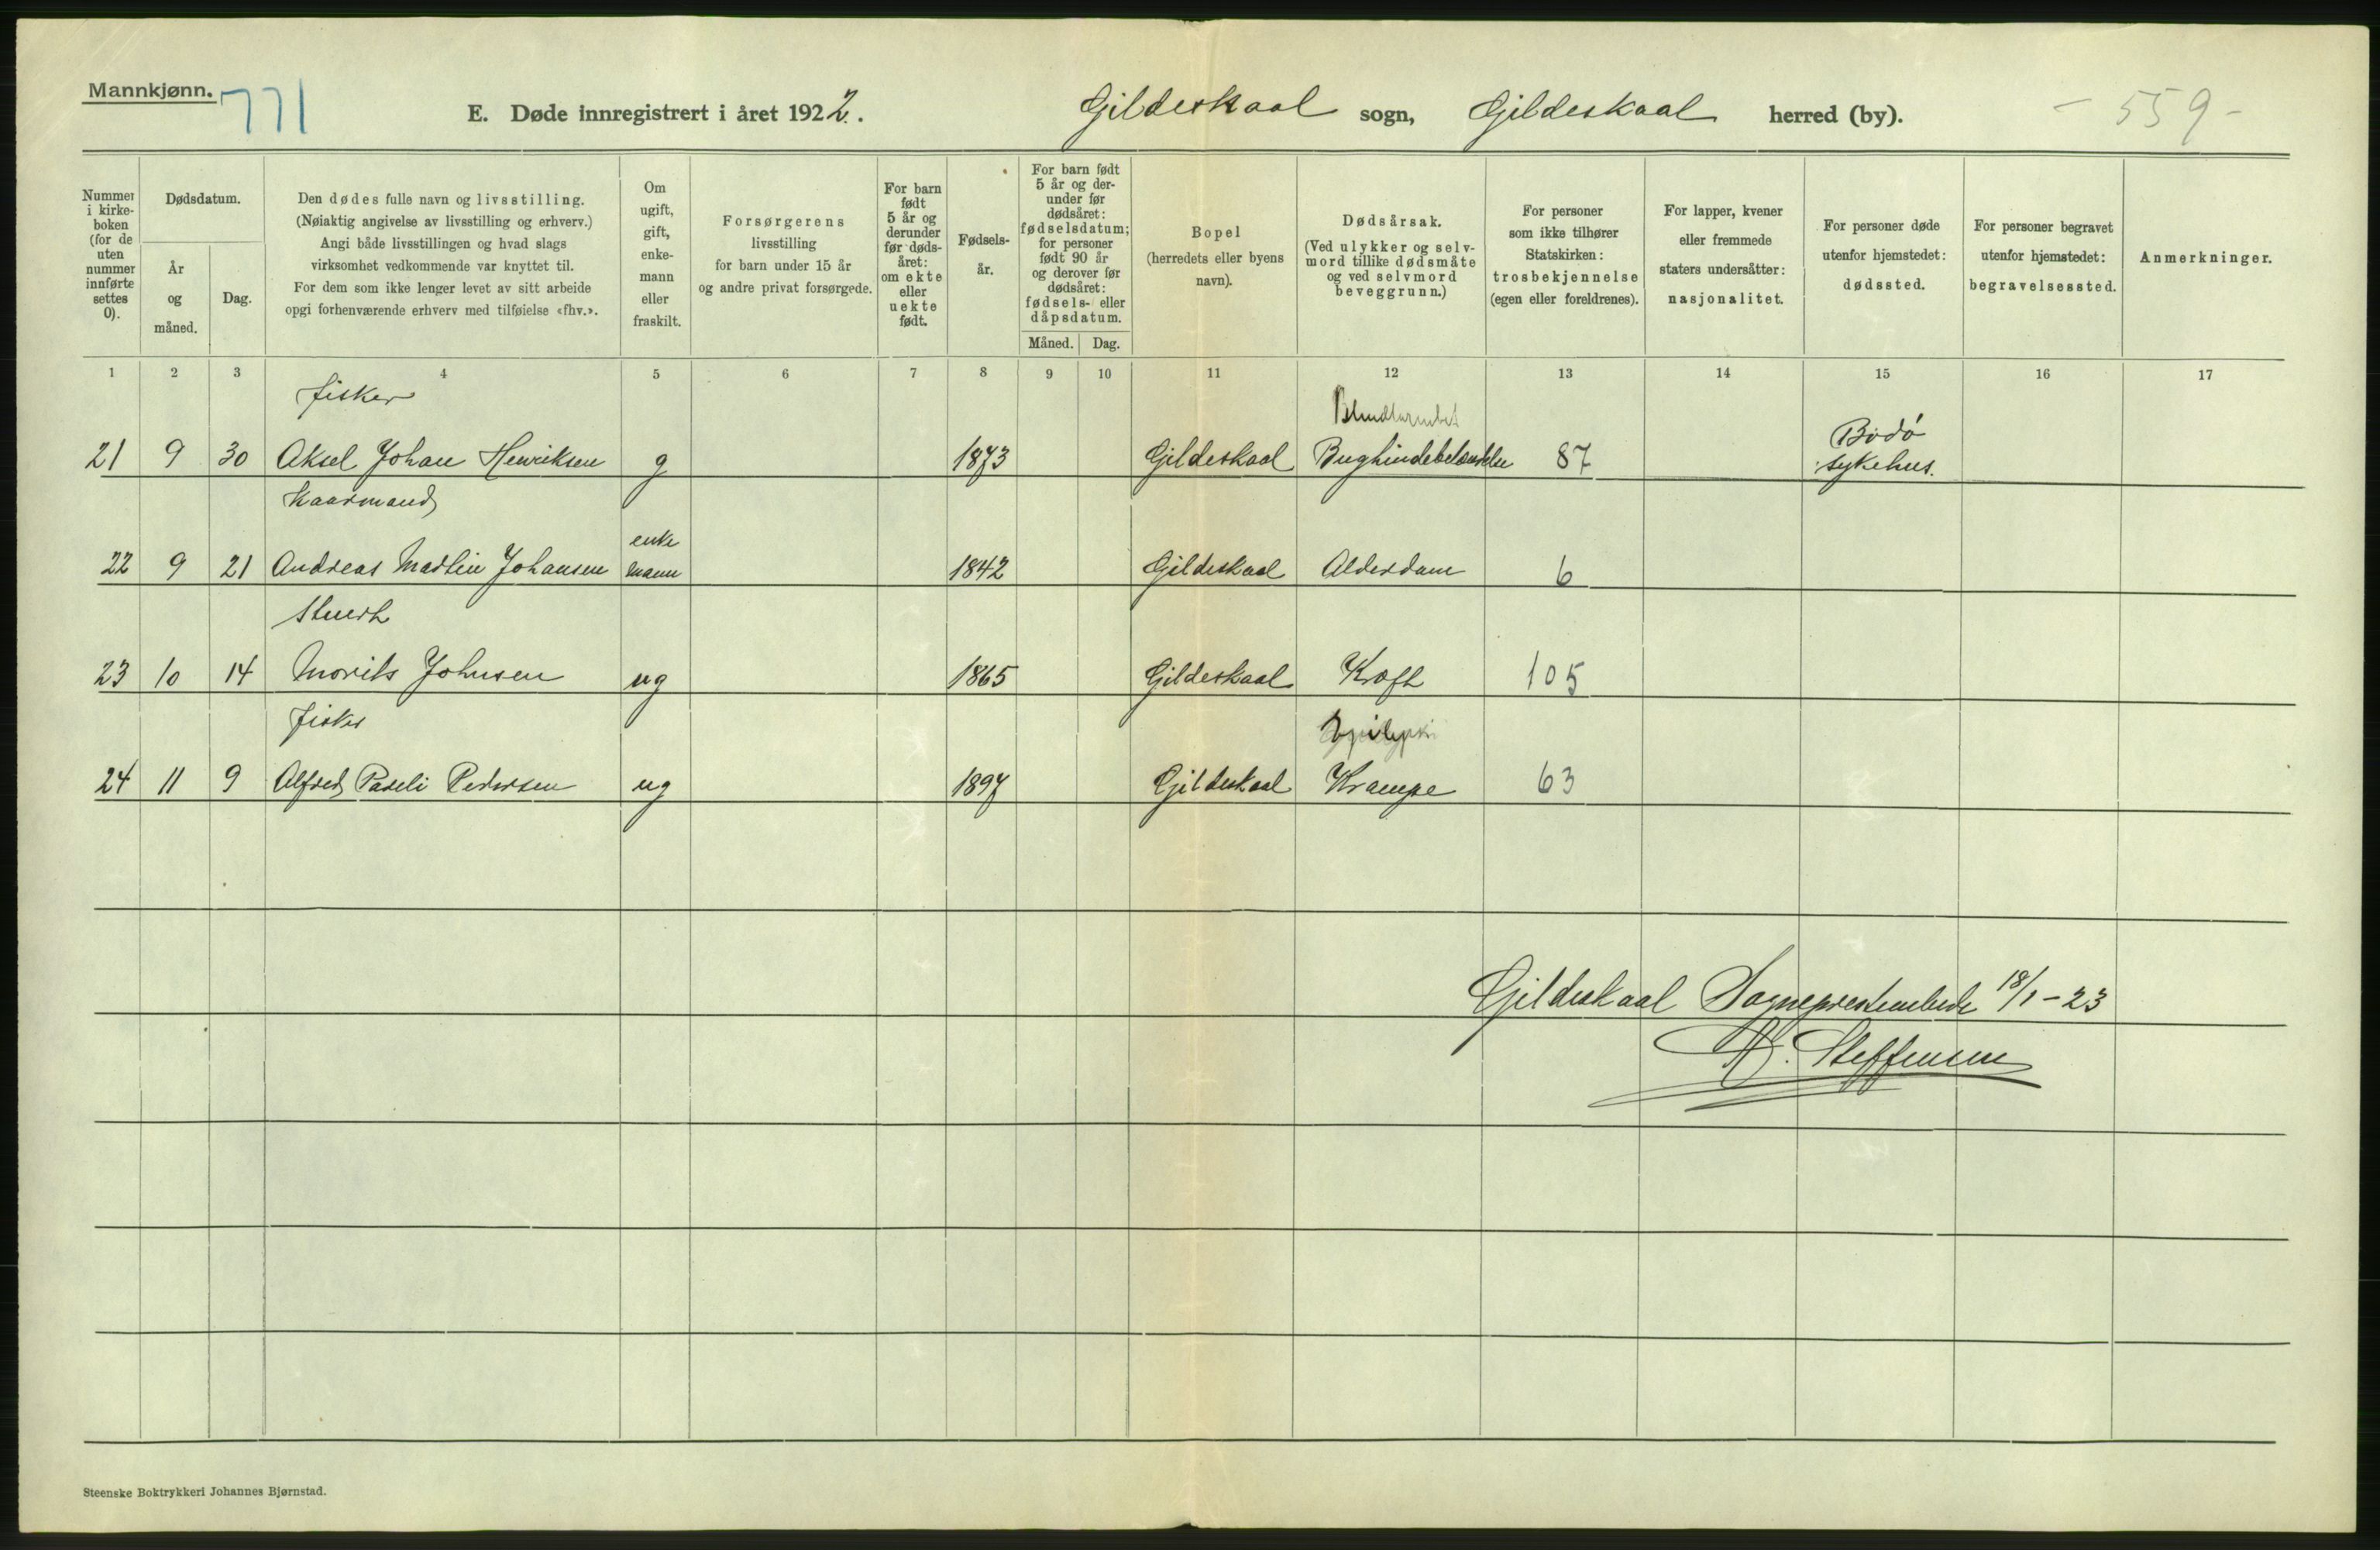 Mannkjønn.
771
E. Døde innregistrert i året 1922. Gildeskaal sogn, Gildeskaal herred (by).
- 559 -
Nummer i kirke- boken (for de uten nummer innførte settes 0).
Dødsdatum.
År og måned.
Dag.
Den dødes fulle navn og livsstilling.
(Nøiaktig angivelse av livsstilling og erhverv.)
Angi både livsstillingen og hvad slags
virksomhet vedkommende var knyttet til.
For dem som ikke lenger levet av sitt arbeide
opgi forhenværende erhverv med tilføielse «fhv.».
Om ugift, gift, enke- mann eller fraskilt.
Forsørgerens
livsstilling
for barn under 15 år
og andre privat forsørgede.
For barn født 5 år og derunder før døds- året: om ekte eller uekte født.
Fødsels- år.
For barn født 5 år og der- under før dødsåret: fødselsdatum; for personer født 90 år og derover før dødsåret: fødsels- eller dåpsdatum.
Måned. Dag.
Bopel
(herredets eller byens
navn).
Dødsårsak.
(Ved ulykker og selv-
mord tillike dødsmåte
og ved selvmord
beveggrunn.)
For personer
som ikke tilhører
Statskirken:
trosbekjennelse
(egen eller foreldrenes).
For lapper, kvener
eller fremmede
staters undersåtter:
nasjonalitet.
For personer døde
utenfor hjemstedet:
dødssted.
For personer begravet
utenfor hjemstedet:
begravelsessted.
Anmerkninger.
1 2 3 4 5 6 7 8 9 10 11 12 13 14 15 16 17
fisker
21 9 30 Aksel Johan Henriksen g 1873 Gildeskaal 87 Bodø sykehus.
Kaarmand
22 9 21 Andreas Martin Johansen enke mann 1842 Gildeskaal Alderdom 6
23 10 14 Morits Johnsen ug 1865 Gildeskaal Kræft 105
fisker
Epilepsi
24 11 9 Alfred Paseli Pedersen ug 1897 Gildeskaal Krampe 63
Gildeskaal Sogneprestembede 18/1-23
Steffensen
Steenske Boktrykkeri Johannes Bjørnstad.